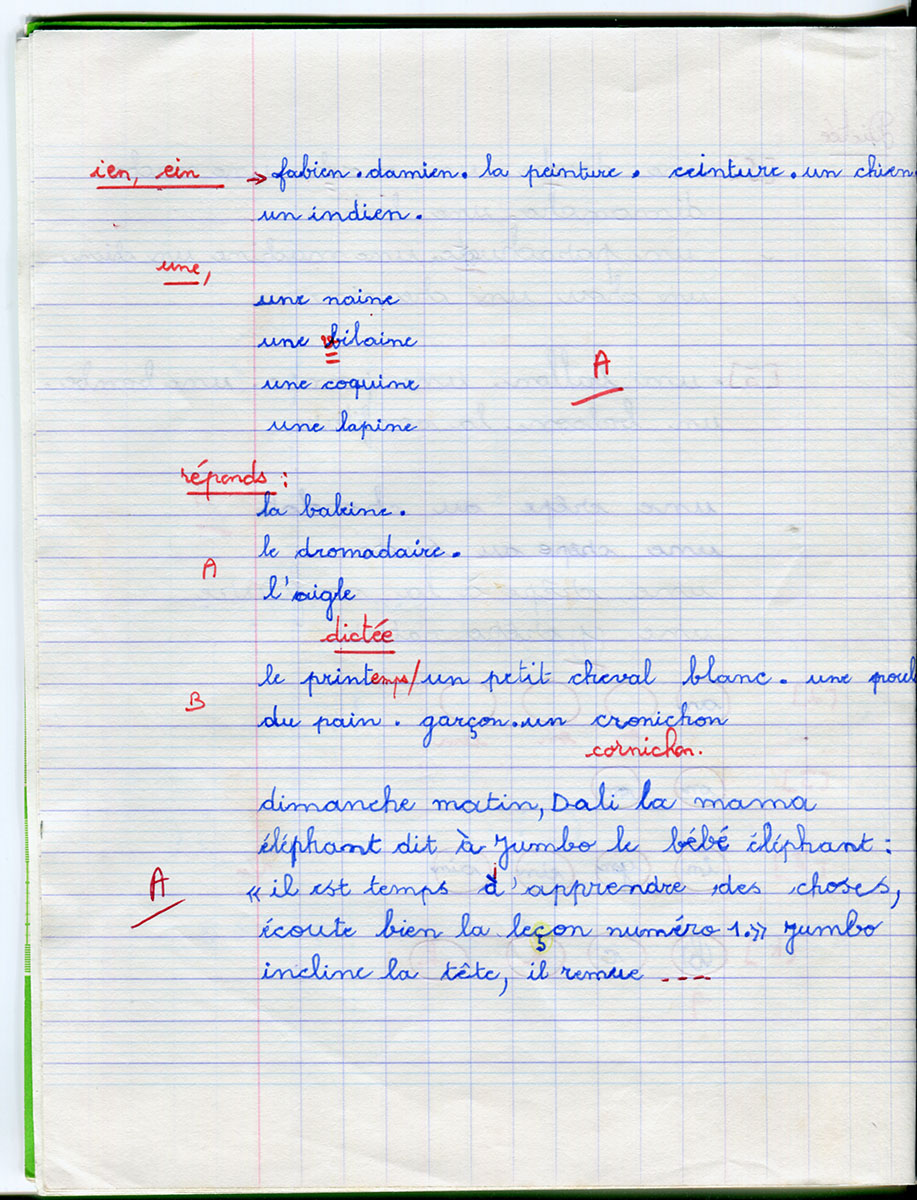 ien, ein → fabien. damien. la peinture. ceinture. un chien
un indien.
une,
une naine
une vilaine
A
une coquine
une lapine
réponds :
la baleine.
le dromadaire.
A
l'aigle
dictée
le printemps/un petit cheval blanc. une poul
B
du pain. garçon. un cronichon
cornichon.
dimanche matin, Dali la mama
éléphant dit à Jumbo le bébé éléphant :
A
« il est temps d'apprendre des choses,
écoute bien la leçon numéro 1.» Jumbo
incline la tête, il remue ----